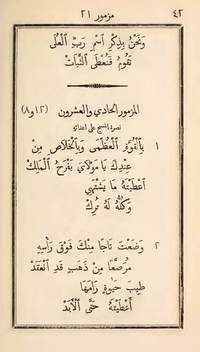 ٤٢ مزمور ٢١
وَنَحْنُ بِذِكْرِ اسْمِ رَبِّ الْعُلَى
نَقُومُ فَنُعْطَى الثَّبَاتْ
المزمور الحادي والعشرون (١٢ و ٨)
نصرة المسيح على اعدائهِ
١ بِالْقُوَّةِ الْعُظْمَى وَبِالْخَلَاصِ مِنْ
عِنْدِكَ يَا مَوْلَايَ يَفْرَحُ الْمَلِكْ
أَعْطَيْتَهُ مَا يَشْتَهِي
وَكُلُّهُ لَهُ تُرِكْ
٢ وَضَعْتَ تَاجًا مِنْكَ فَوْقَ رَاسِهِ
مُرَصَّعًا مِنْ ذَهَبٍ قَدِ انْعَقَدْ
طِيبَ حَيٰوةٍ رَامَهَا
أَعْطَيْتَهُ حَتَّى الْأَبَدْ